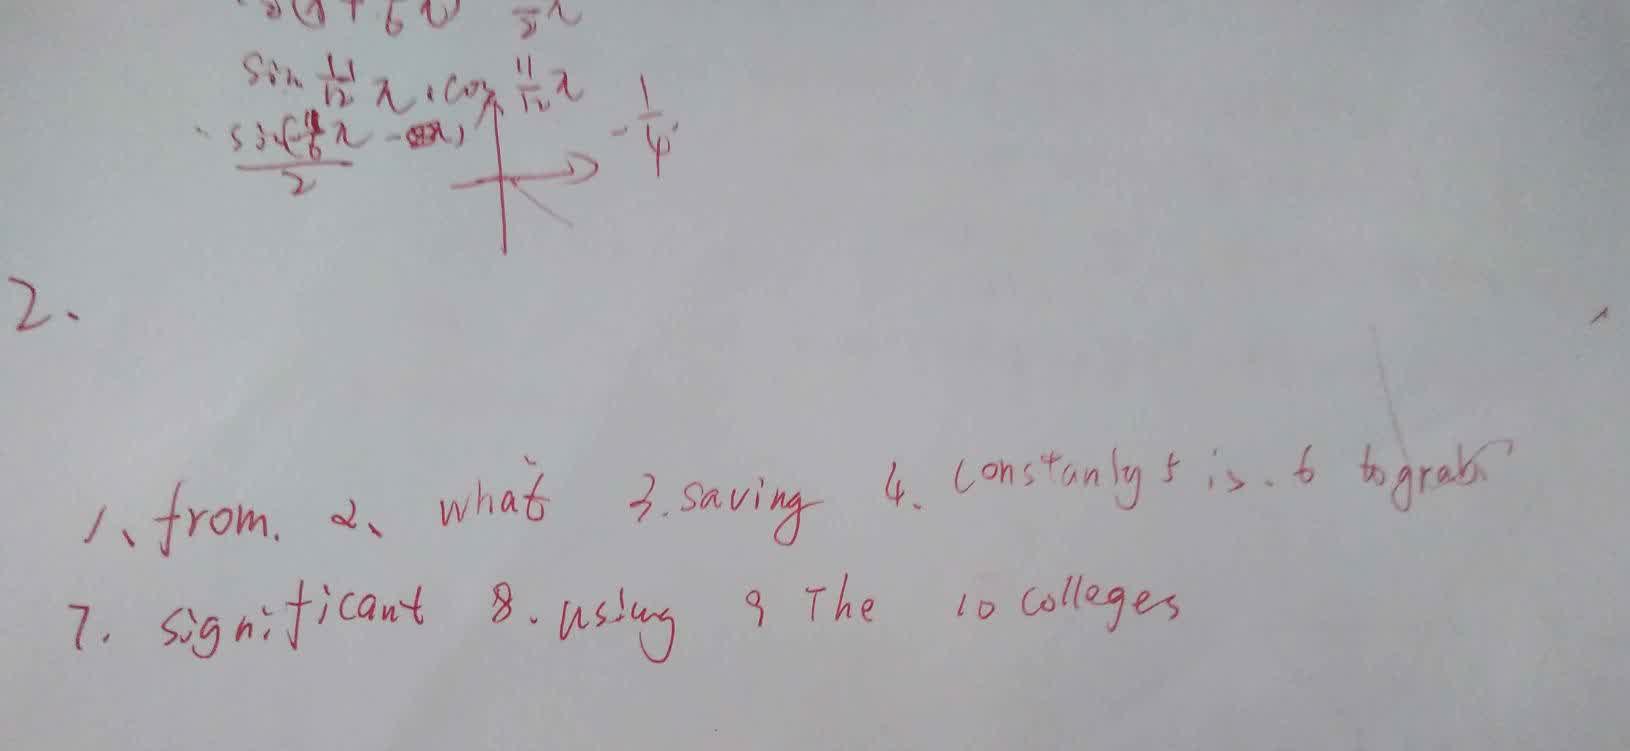 sin 11/12 π · cos 11/12 π
2
- 1/4
2.
1、from. 2、 what 3. saving 4. constanly 5 is. 6 to grab
7. significant 8. using 9 The 10 colleges